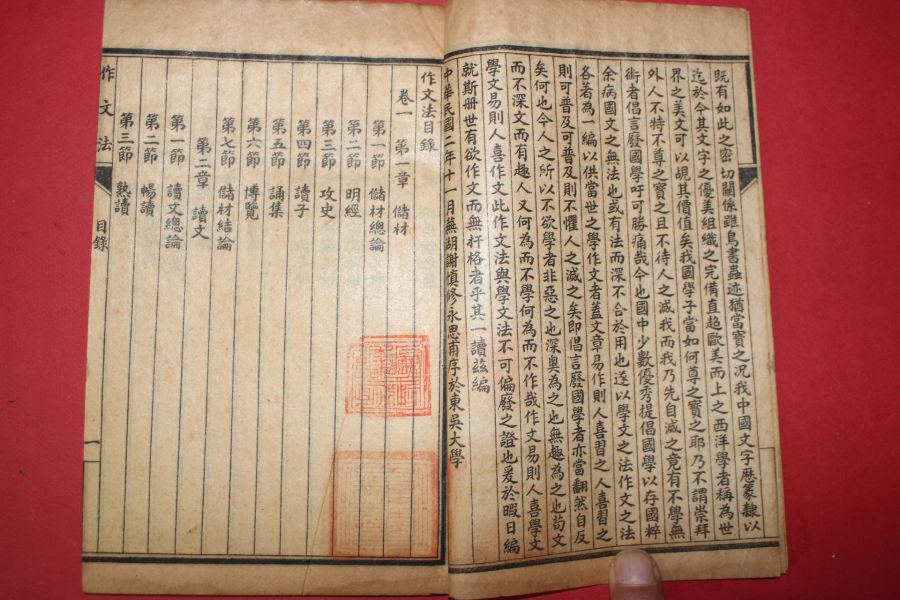 既有如此之密切關係雖鳥書蟲迹猶當寶之況我中國文字歷篆隸以
迄於今其文字之優美組織之完備直趨歐美而上之西洋學者稱為世
界之美文可以覘其價值矣我國學子當如何尊之寶之耶乃不謂崇拜
外人不特不尊之寶之且不待人之滅我而我乃先自滅之竟有不學無
術者倡言廢國學吁可勝痛哉今也國中少數優秀提倡國學以存國粹
余病國文之無法也或有法而深不合於用也遂以學文之法作文之法
各著為一編以供當世之學作文者蓋文章易作則人喜習之人喜習之
則可普及可普及則不懼人之滅之矣即倡言廢國學者亦當翻然自反
矣何也今人之所以不欲學者非惡之也深奧為之也無趣為之也苟文
而不深文而有趣人又何為而不學何為而不作哉作文易則人喜學文
學文易則人喜作文此作文法與學文法不可偏廢之證也爰於暇日編
就斯冊世有欲作文而無扞格者乎其一讀茲編
中華民國二年十一月蕪湖謝慎修永思甫序於東吳大學
作文法目錄
卷一 第一章 儲材
第一節 儲材總論
第二節 明經
第三節 攻史
第四節 讀子
第五節 誦集
第六節 博覽
第七節 儲材結論
第二章 讀文
第一節 讀文總論
第二節 暢讀
第三節 熟讀
作文法 目錄 一